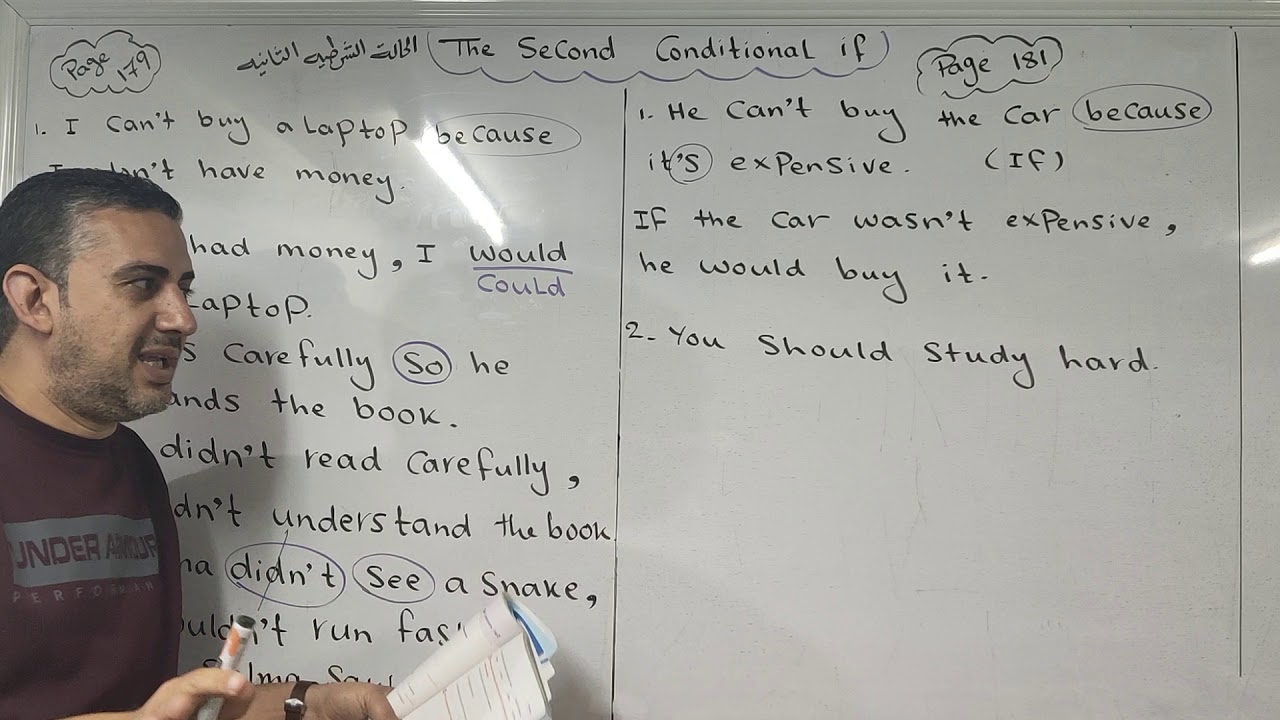 Page 179
الحالة الشرطية الثانية
The Second Conditional if
Page 181
1. I can't buy a Laptop because
have money.
had money, I would
could
Laptop.
s carefully so he
the book.
didn't read carefully,
understand the book
didn't see a snake,
run
1. He can't buy the car because
it's expensive. (If)
If the car wasn't expensive,
he would buy it.
2- You should study hard.
UNDER ARMOUR